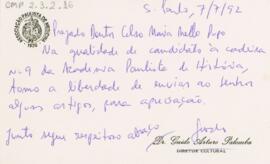 CMP 2.3.2.86
S. Paulo, 7/7/92
ASSOCIAÇÃO PAULISTA DE
Prezado Doutor Celso Maria Mello Pupo
Na qualidade de candidato à cadeira
nº 9 da Academia Paulista de História,
tomo a liberdade de enviar ao senhor
alguns artigos, para apreciação.
Junto segue respeitoso abraço
Dr. Guido Arturo Palomba
DIRETOR CULTURAL